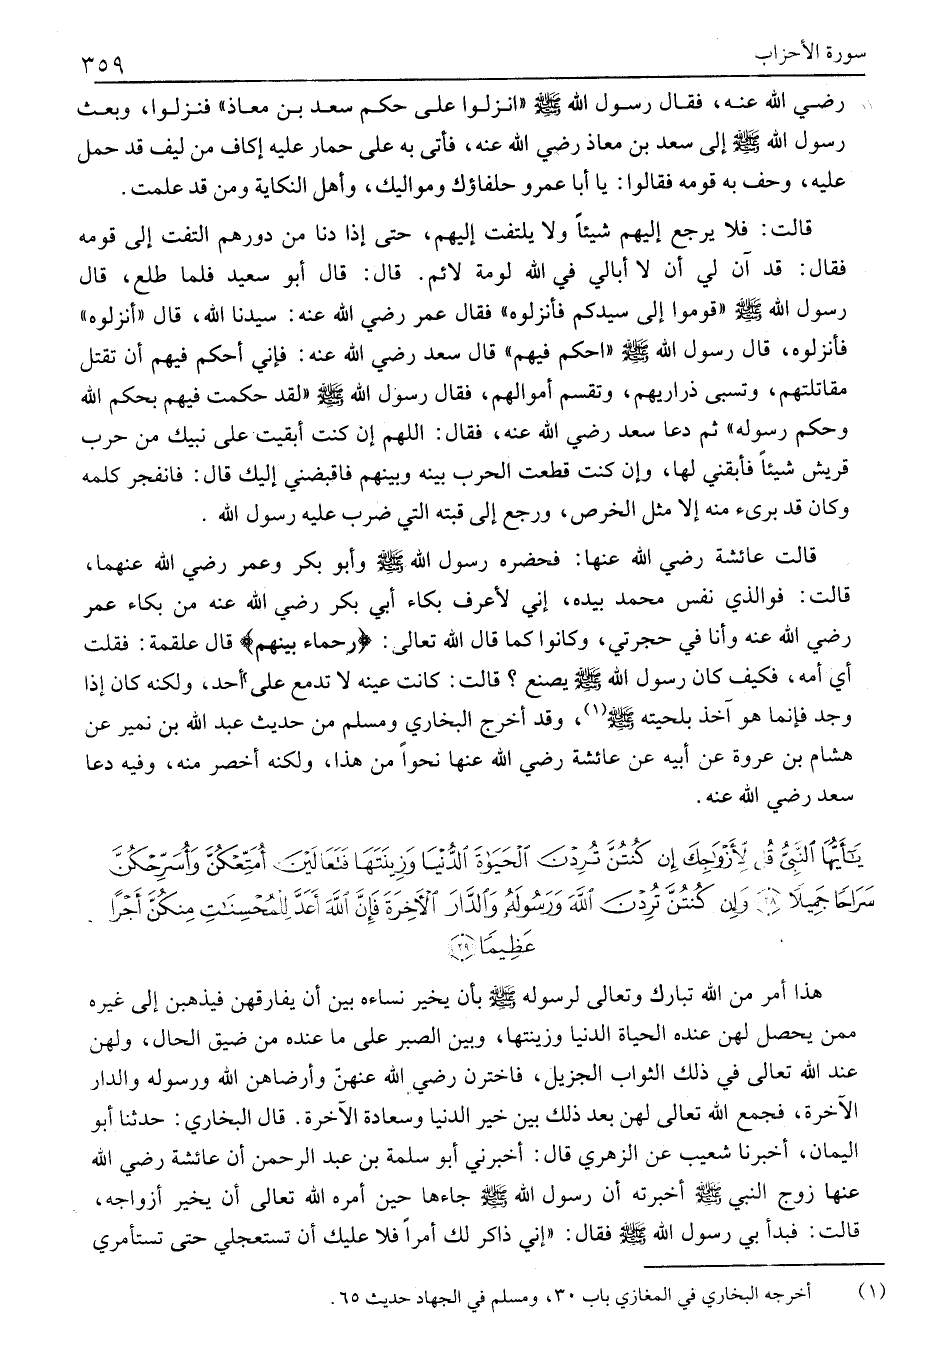 سورة الأحزاب
٣٥٩
رضي الله عنه، فقال رسول الله ﷺ «انزلوا على حكم سعد بن معاذ» فنزلوا، وبعث
رسول الله ﷺ إلى سعد بن معاذ رضي الله عنه، فأتى به على حمار عليه إكاف من ليف قد حمل
عليه، وحف به قومه فقالوا: يا أبا عمرو حلفاؤك ومواليك، وأهل النكاية ومن قد علمت.
قالت: فلا يرجع إليهم شيئاً ولا يلتفت إليهم، حتى إذا دنا من دورهم التفت إلى قومه
فقال: قد آن لي أن لا أبالي في الله لومة لائم. قال: قال أبو سعيد فلما طلع، قال
رسول الله ﷺ «قوموا إلى سيدكم فأنزلوه» فقال عمر رضي الله عنه: سيدنا الله، قال «أنزلوه»
فأنزلوه، قال رسول الله ﷺ «احكم فيهم» قال سعد رضي الله عنه: فإني أحكم فيهم أن تقتل
مقاتلتهم، وتسبى ذراريهم، وتقسم أموالهم، فقال رسول الله ﷺ «لقد حكمت فيهم بحكم الله
وحكم رسوله» ثم دعا سعد رضي الله عنه، فقال: اللهم إن كنت أبقيت على نبيك من حرب
قريش شيئاً فأبقني لها، وإن كنت قطعت الحرب بينه وبينهم فاقبضني إليك قال: فانفجر كلمه
وكان قد برىء منه إلا مثل الخرص، ورجع إلى قبته التي ضرب عليه رسول الله .
قالت عائشة رضي الله عنها: فحضره رسول الله ﷺ وأبو بكر وعمر رضي الله عنهما،
قالت: فوالذي نفس محمد بيده، إني لأعرف بكاء أبي بكر رضي الله عنه من بكاء عمر
رضي الله عنه وأنا في حجرتي، وكانوا كما قال الله تعالى: ﴿رحماء بينهم﴾ قال علقمة: فقلت
أي أمه، فكيف كان رسول الله ﷺ يصنع ؟ قالت: كانت عينه لا تدمع على أحد، ولكنه كان إذا
وجد فإنما هو آخذ بلحيته ﷺ(١)، وقد أخرج البخاري ومسلم من حديث عبد الله بن نمير عن
هشام بن عروة عن أبيه عن عائشة رضي الله عنها نحواً من هذا، ولكنه أخصر منه، وفيه دعا
سعد رضي الله عنه.
يَٰٓأَيُّهَا ٱلنَّبِىُّ قُل لِّأَزْوَٰجِكَ إِن كُنتُنَّ تُرِدْنَ ٱلْحَيَوٰةَ ٱلدُّنْيَا وَزِينَتَهَا فَتَعَالَيْنَ أُمَتِّعْكُنَّ وَأُسَرِّحْكُنَّ
سَرَاحًا جَمِيلًا ٢٨ وَإِن كُنتُنَّ تُرِدْنَ ٱللَّهَ وَرَسُولَهُۥ وَٱلدَّارَ ٱلْأَخِرَةَ فَإِنَّ ٱللَّهَ أَعَدَّ لِلْمُحْسِنَٰتِ مِنكُنَّ أَجْرًا
عَظِيمًا ٢٩
هذا أمر من الله تبارك وتعالى لرسوله ﷺ بأن يخير نساءه بين أن يفارقهن فيذهبن إلى غيره
ممن يحصل لهن عنده الحياة الدنيا وزينتها، وبين الصبر على ما عنده من ضيق الحال، ولهن
عند الله تعالى في ذلك الثواب الجزيل، فاخترن رضي الله عنهنّ وأرضاهن الله ورسوله والدار
الآخرة، فجمع الله تعالى لهن بعد ذلك بين خير الدنيا وسعادة الآخرة. قال البخاري: حدثنا أبو
اليمان، أخبرنا شعيب عن الزهري قال: أخبرني أبو سلمة بن عبد الرحمن أن عائشة رضي الله
عنها زوج النبي ﷺ أخبرته أن رسول الله ﷺ جاءها حين أمره الله تعالى أن يخير أزواجه،
قالت: فبدأ بي رسول الله ﷺ فقال: «إني ذاكر لك أمراً فلا عليك أن تستعجلي حتى تستأمري
(١) أخرجه البخاري في المغازي باب ٣٠، ومسلم في الجهاد حديث ٦٥.